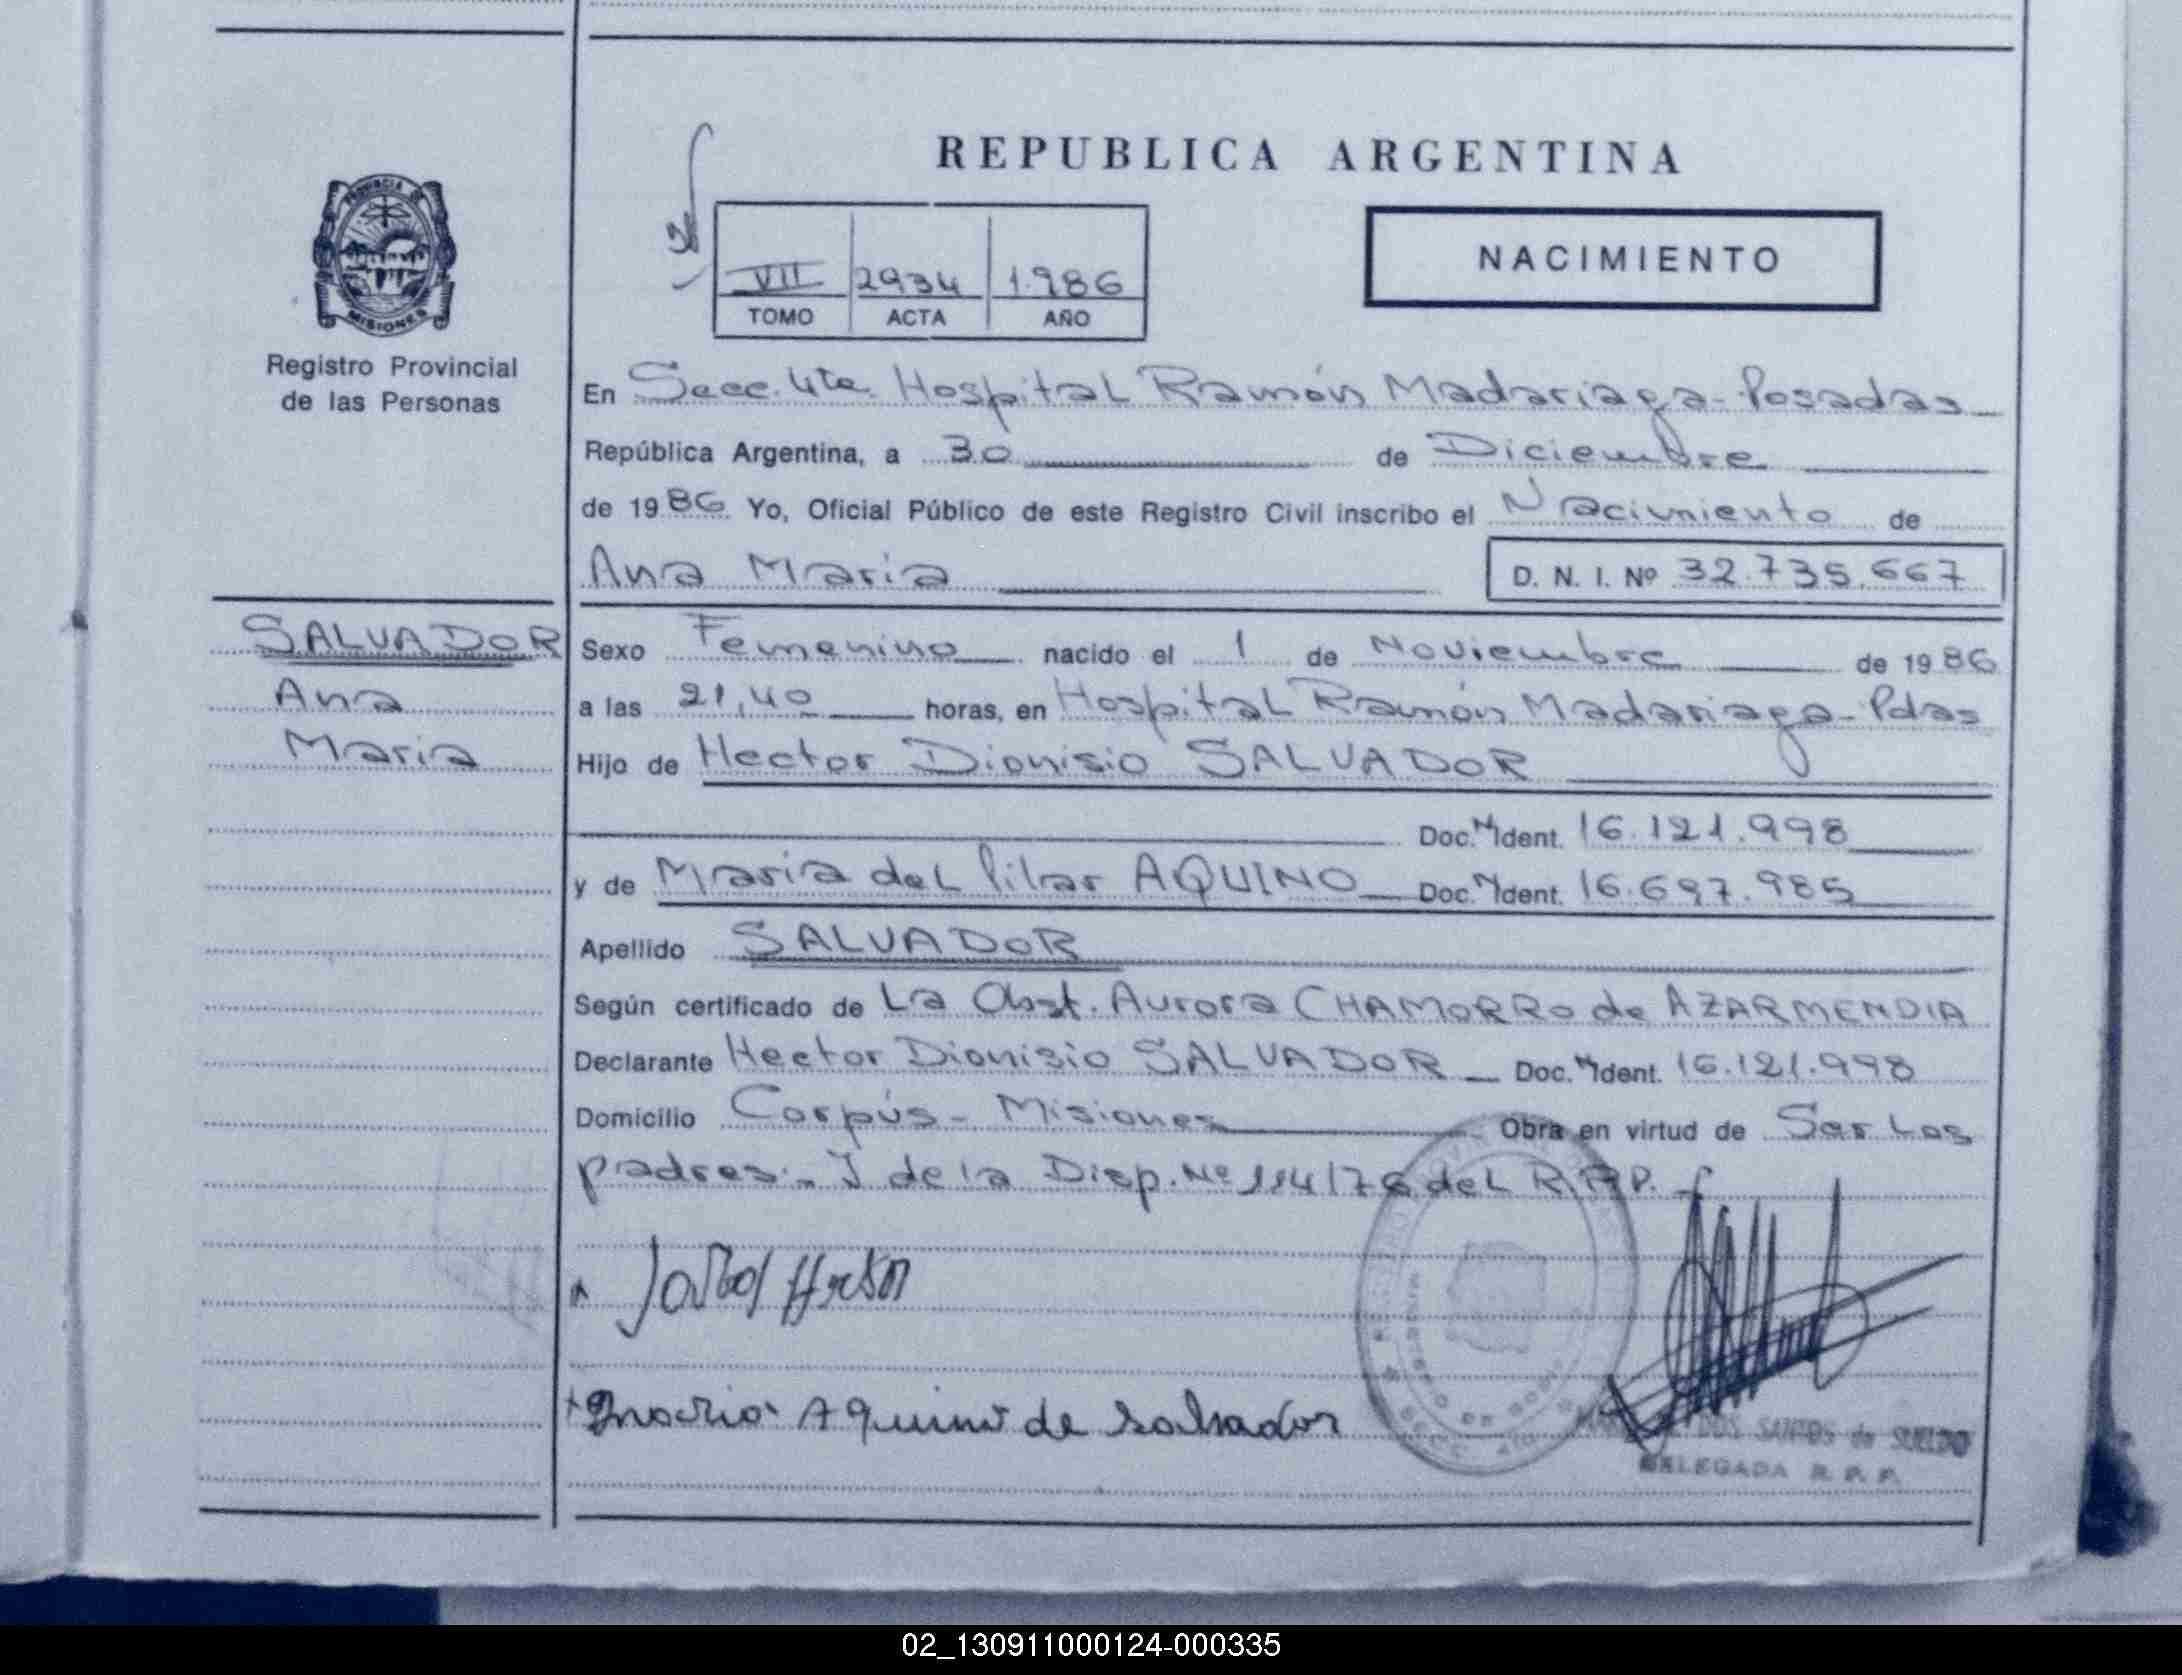 REPUBLICA ARGENTINA
NACIMIENTO
VII 2934 1.986
TOMO ACTA AÑO
PROVINCIA DE
MISIONES
Registro Provincial
de las Personas
En Secc. 4ta. Hospital Ramón Madariaga - Posadas
República Argentina, a 30 de Diciembre
de 1986 Yo, Oficial Público de este Registro Civil inscribo el Nacimiento de
Ana Maria D. N. I. Nº 32.735.667
SALVADOR
Ana
Maria
Sexo Femenino nacido el 1 de Noviembre de 1986
a las 21,40 horas, en Hospital Ramón Madariaga - Pdas
Hijo de Hector Dionisio SALVADOR
Doc. Ident. 16.121.998
y de Maria del Pilar AQUINO Doc. Ident. 16.697.985
Apellido SALVADOR
Según certificado de La Obst. Aurora CHAMORRO de AZARMENDIA
Declarante Hector Dionisio SALVADOR Doc. Ident. 16.121.998
Domicilio Corpús - Misiones Obra en virtud de Ser los
padres.- I de la Disp. Nº 114/76 del R.P.P.
Maria Aquino de Salvador
DOS SANTOS de SUELDO
DELEGADA R. P. P.
02_130911000124-000335